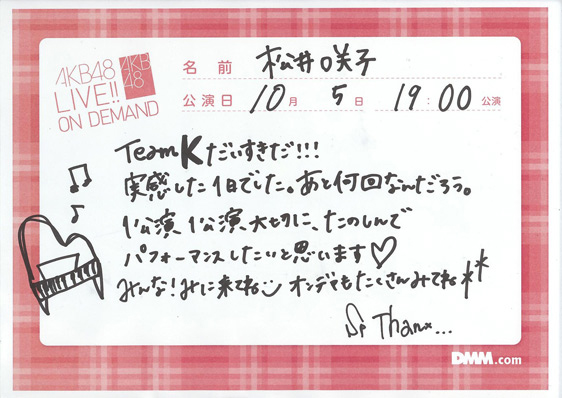 AKB48
LIVE!!
ON DEMAND
AKB
48
名前 松井咲子
公演日 10月 5日 19:00公演
TeamKだいすきだ!!!
実感した1日でした。あと何回なんだろう。
1公演1公演大切に、たのしんで
パフォーマンスしたいと思います♡
みんな!みに来てね オンデマもたくさんみてね**
Sp Thanx...
DMM.com